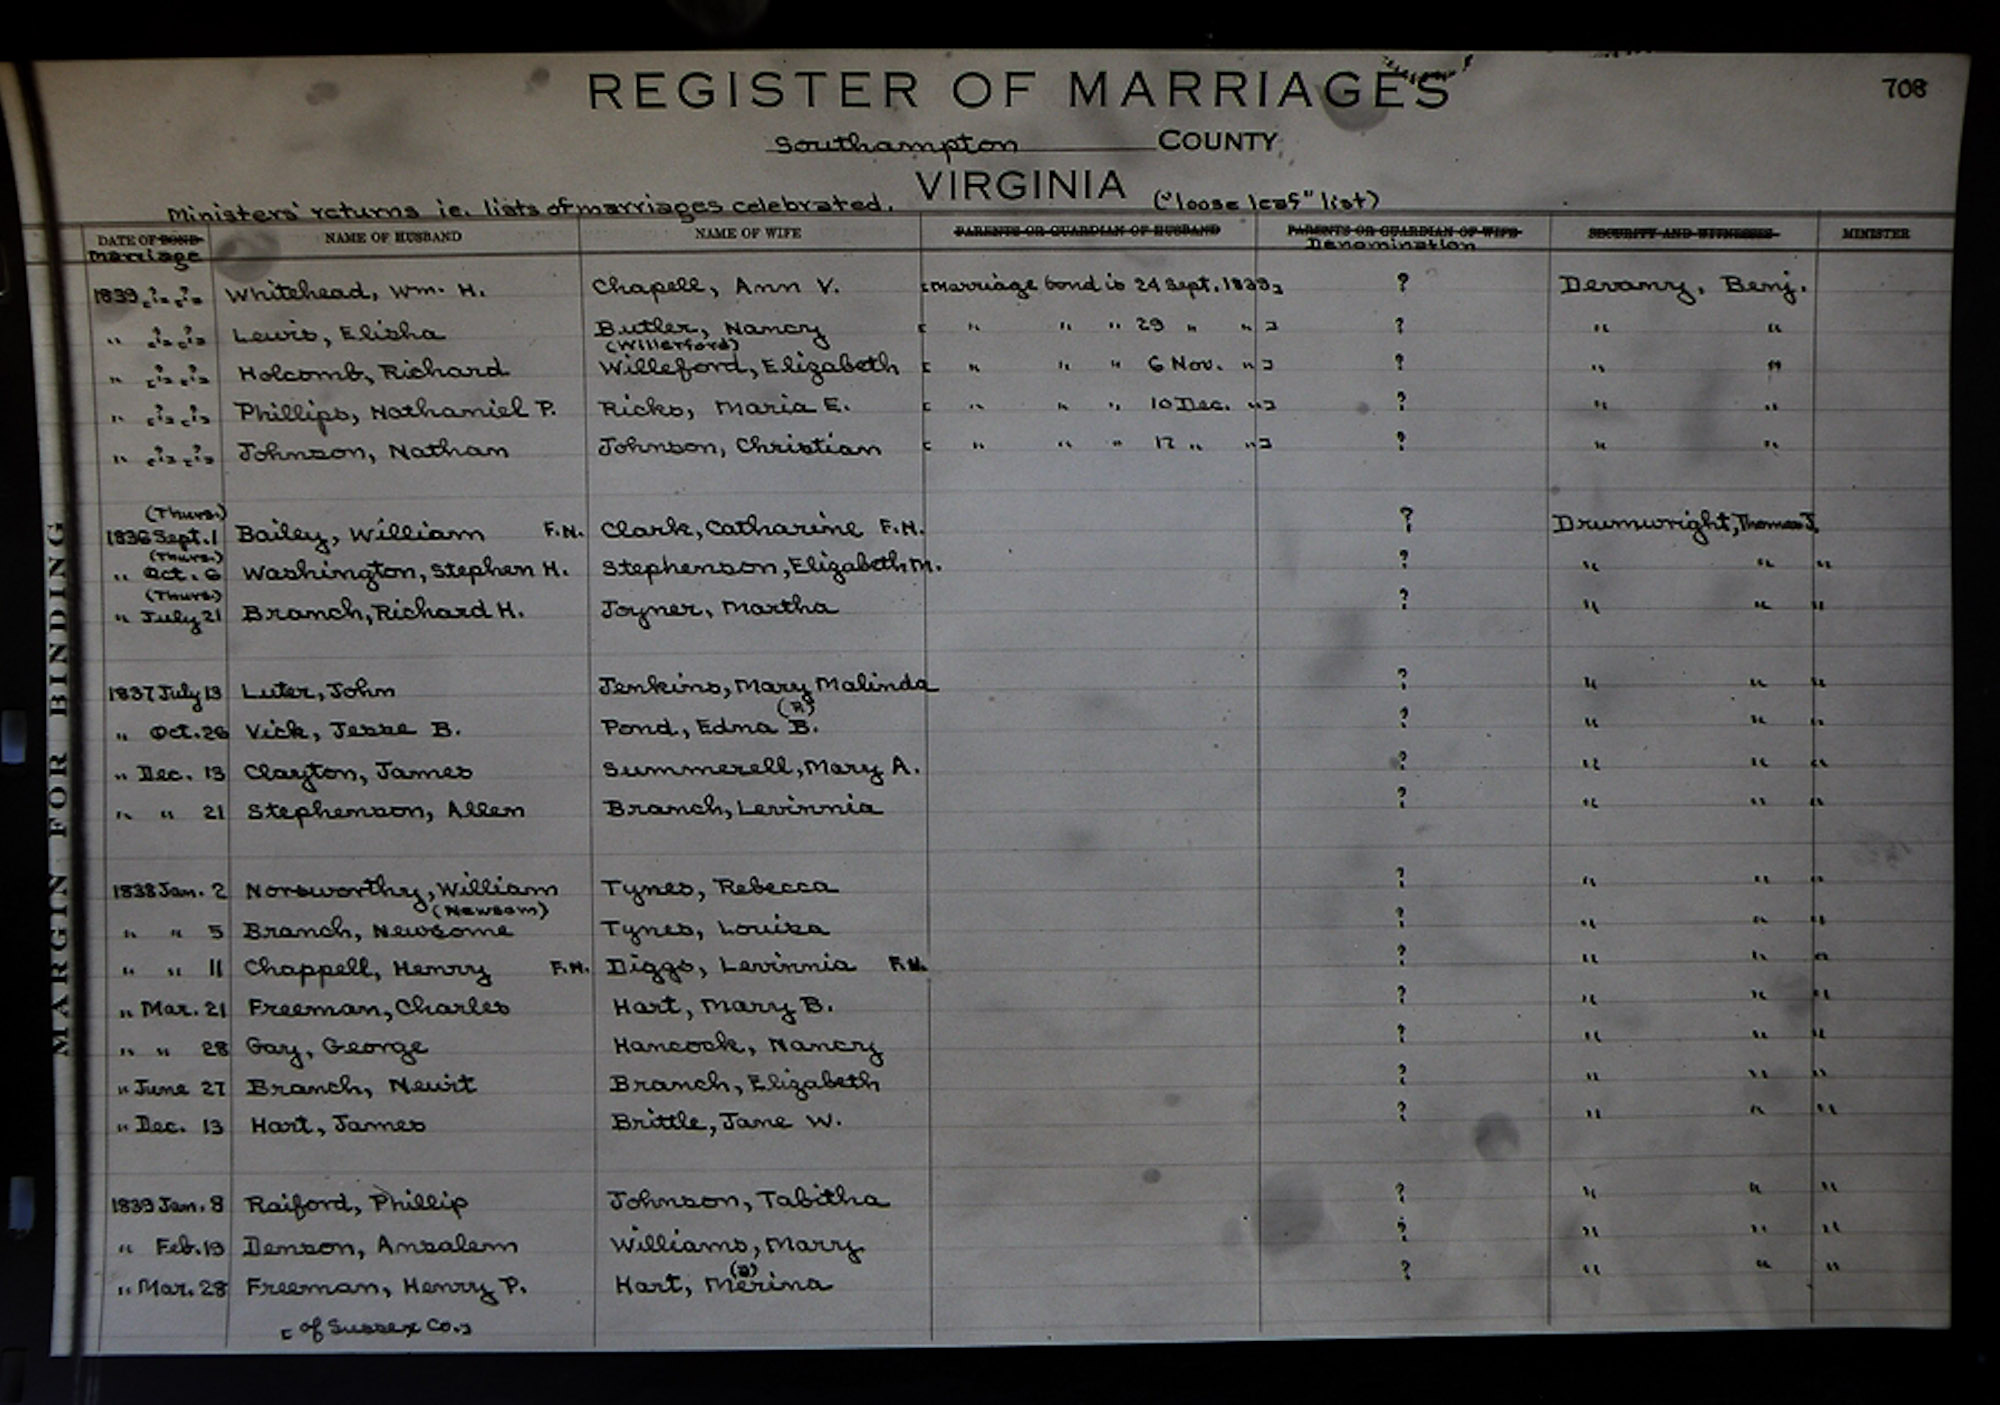 REGISTER OF MARRIAGES
708
Southampton COUNTY
VIRGINIA
Ministers' returns ie. lists of marriages celebrated. ("loose leaf" list)
DATE OF BOND NAME OF HUSBAND NAME OF WIFE PARENTS OR GUARDIAN OF HUSBAND PARENTS OR GUARDIAN OF WIFE SECURITY AND WITNESSES MINISTER
marriage Denomination
1839 [?] [?] Whitehead, Wm. H. Chapell, Ann V. [Marriage bond is 24 Sept. 1839] ? Devany, Benj.
" [?] [?] Lewis, Elisha Butler, Nancy [ " " " 29 " " ] ? " "
(Willerford)
" [?] [?] Holcomb, Richard Willeford, Elizabeth [ " " " 6 Nov. " ] ? " "
" [?] [?] Phillips, Nathaniel P. Ricks, Maria E. [ " " " 10 Dec. " ] ? " "
" [?] [?] Johnson, Nathan Johnson, Christian [ " " " 12 " " ] ? " "
(Thurs.)
1836 Sept. 1 Bailey, William F.N. Clark, Catharine F.N. ? Drumwright, Thomas J.
(Thurs.)
" Oct. 6 Washington, Stephen H. Stephenson, Elizabeth M. ? " " "
(Thurs.)
" July 21 Branch, Richard H. Joyner, Martha ? " " "
1837 July 13 Luter, John Jenkins, Mary Malinda ? " " "
(R)
" Oct. 26 Vick, Jesse B. Pond, Edna B. ? " " "
" Dec. 13 Clayton, James Summerell, Mary A. ? " " "
" " 21 Stephenson, Allen Branch, Levinnia ? " " "
1838 Jan. 2 Norsworthy, William Tynes, Rebecca ? " " "
(Newsom)
" " 5 Branch, Newsome Tynes, Louisa ? " " "
" " 11 Chappell, Henry F.N. Diggs, Levinnia F.N. ? " " "
" Mar. 21 Freeman, Charles Hart, Mary B. ? " " "
" " 28 Gay, George Hancock, Nancy ? " " "
" June 27 Branch, Newit Branch, Elizabeth ? " " "
" Dec. 13 Hart, James Brittle, Jane W. ? " " "
1839 Jan. 8 Raiford, Phillip Johnson, Tabitha ? " " "
" Feb. 19 Denson, Ansalem Williams, Mary ? " " "
(a)
" Mar. 28 Freeman, Henry P. Hart, Merina ? " " "
[of Sussex Co.]
MARGIN FOR BINDING